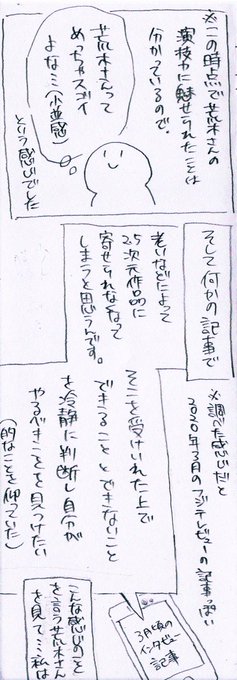 ※この時点で荒木さんの
演技力に魅せられたことは
分かっているので。
荒木さんって
めっちゃスゴイ
よな…(小並感)
という感じでした
そして何かの記事で
老いなどによって
2.5次元作品に
寄せられなくなって
しまうと思うんです。
※調べた感じだと
2020年3月のマンテレビューの記事っぽい
そこを受けいれた上で
できること とできないこと
を冷静に判断し自分が
やるべきことを見つけたい
(的なことを仰っていた)
3月頃の
インタビュー
記事
こんな感じのこと
を言う荒木さん
を見て…私は